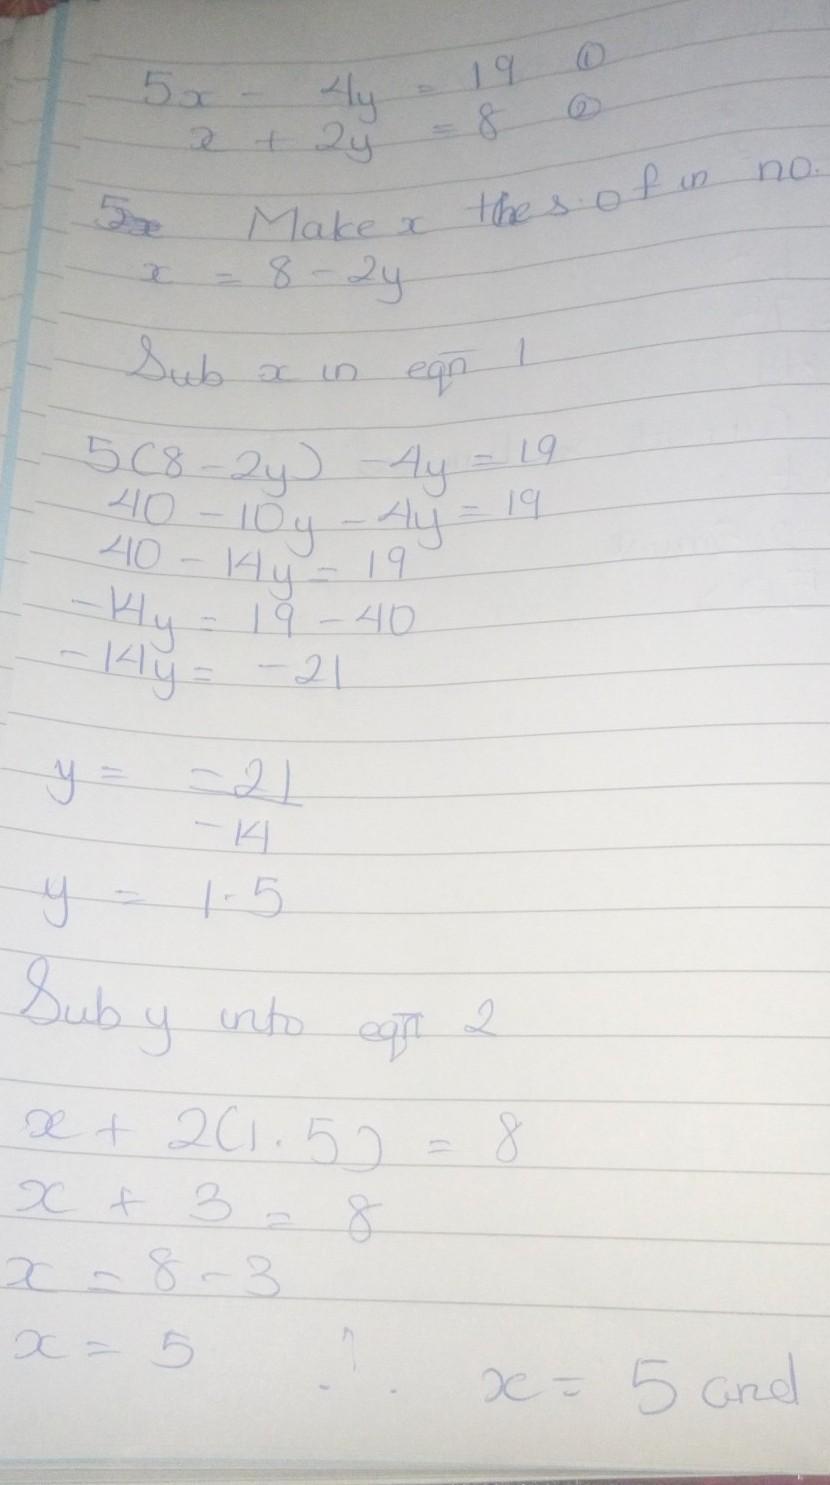 5x - 4y = 19 ①
x + 2y = 8 ②
Make x the s.of in no.
x = 8 - 2y
Sub x in eqn 1
5(8 - 2y) - 4y = 19
40 - 10y - 4y = 19
40 - 14y = 19
-14y = 19 - 40
-14y = -21
y = -21
-14
y = 1.5
Sub y into eqn 2
x + 2(1.5) = 8
x + 3 = 8
x = 8 - 3
x = 5 ∴ x = 5 and